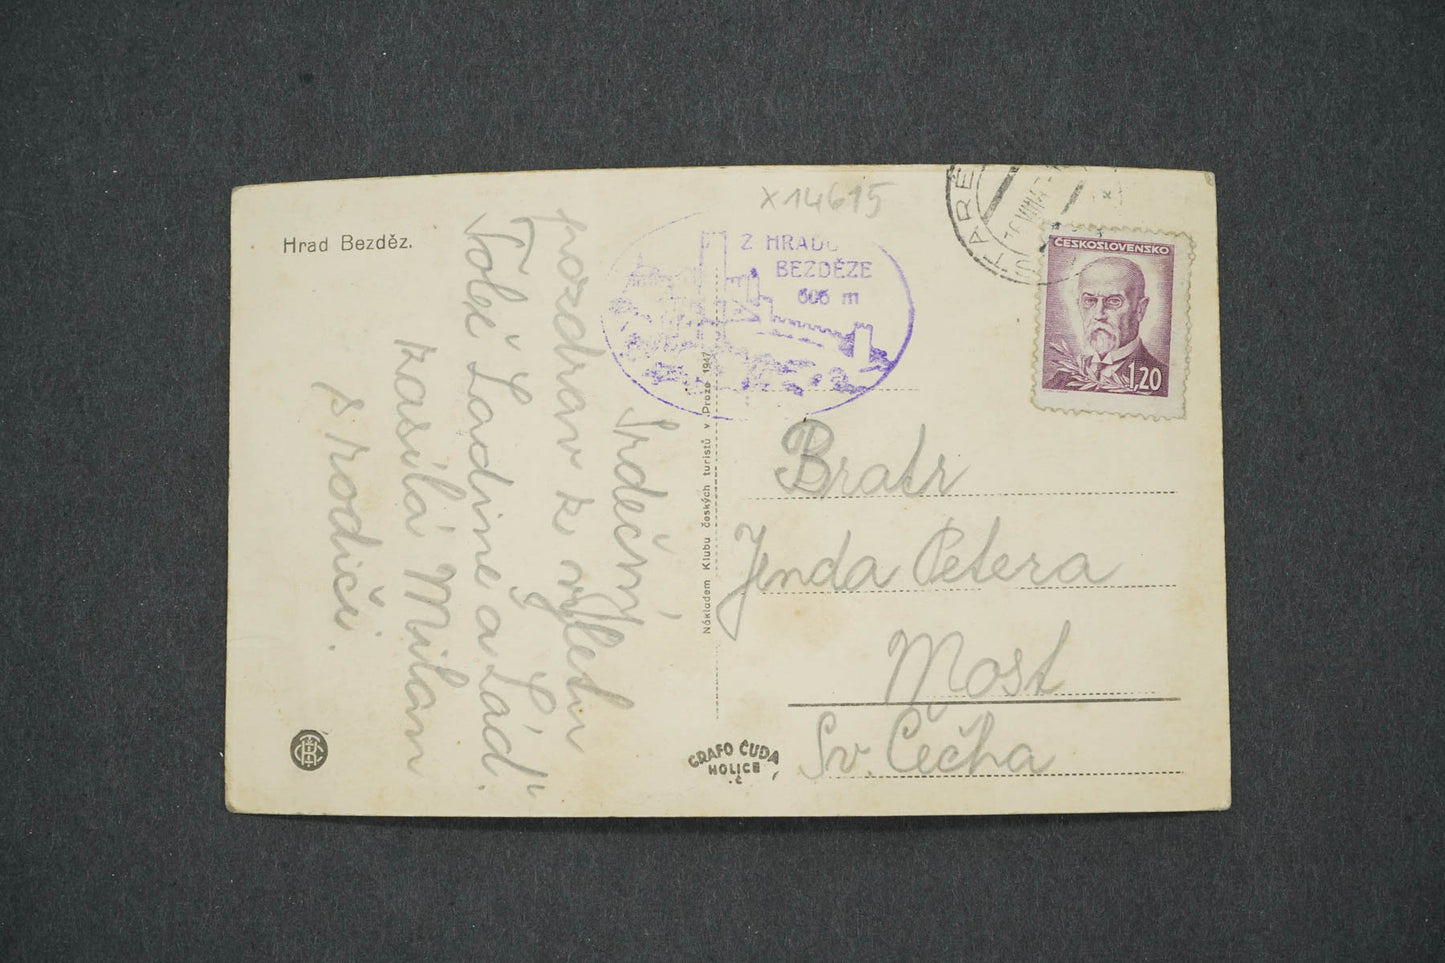 Hrad Bezděz.
x 14615
Z HRADU
BEZDĚZE
606 m
TARÉ
ČESKOSLOVENSKO
1,20
Srdečný
pozdrav z výletu
Tobě Ladine a Lád.
zasílá Milan
s rodiči.
Nákladem Klubu českých turistů v Praze 1947
Bratr
Jenda Petera
Most
Sv. Čecha
GRAFO ČUDA
HOLICE
.č